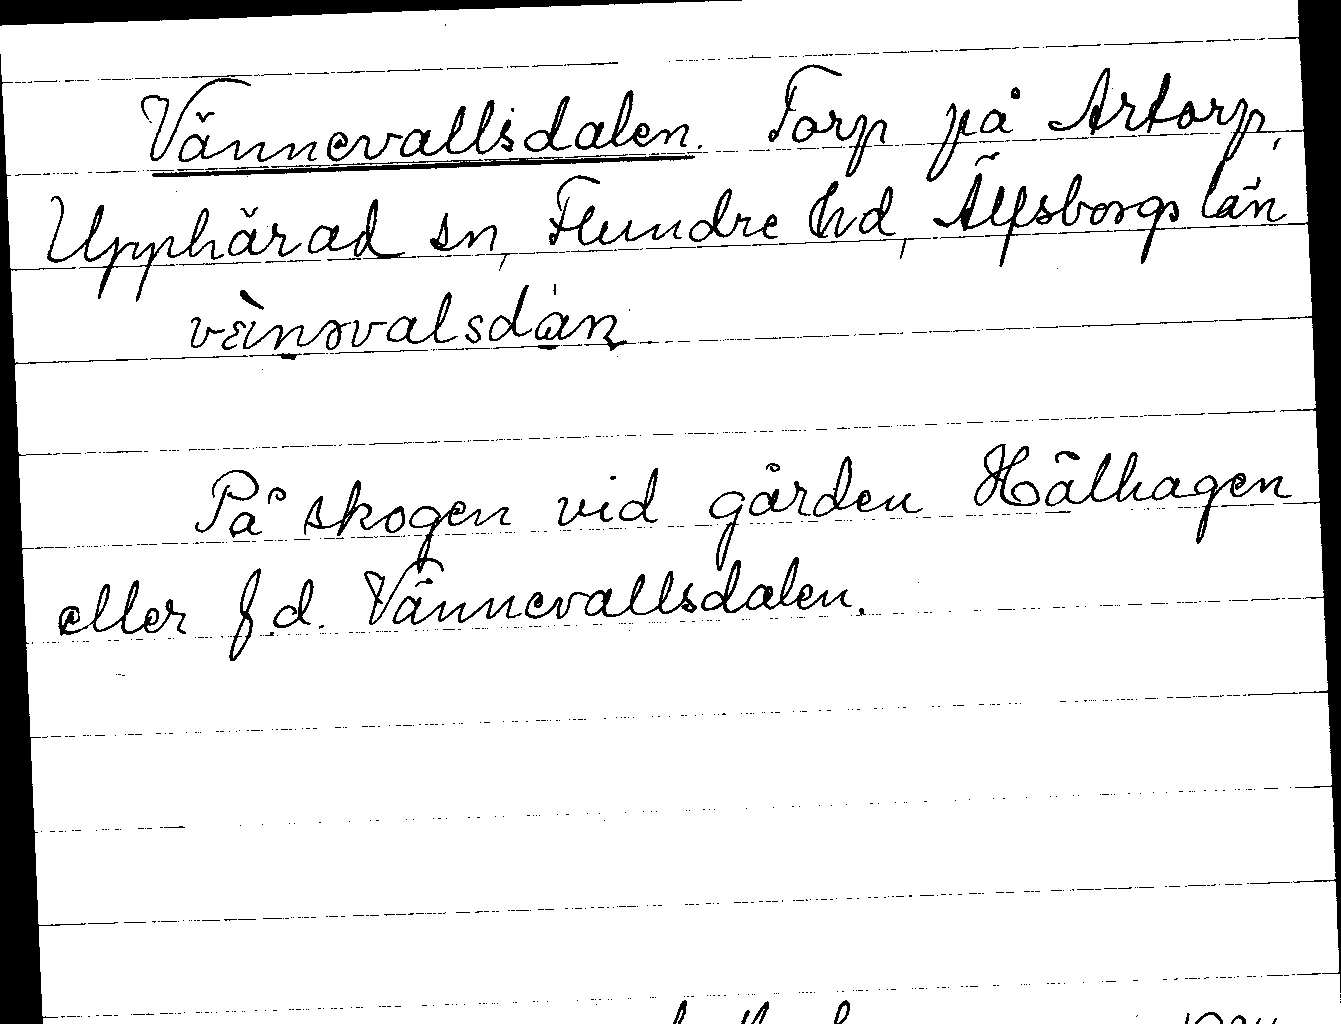 Vännevallsdalen. Torp på Artorp,
Upphärad sn, Flundre hd, Älfsborgs län
vä̀nəvalsdán
På skogen vid gården Hälhagen
eller f.d. Vännevallsdalen.